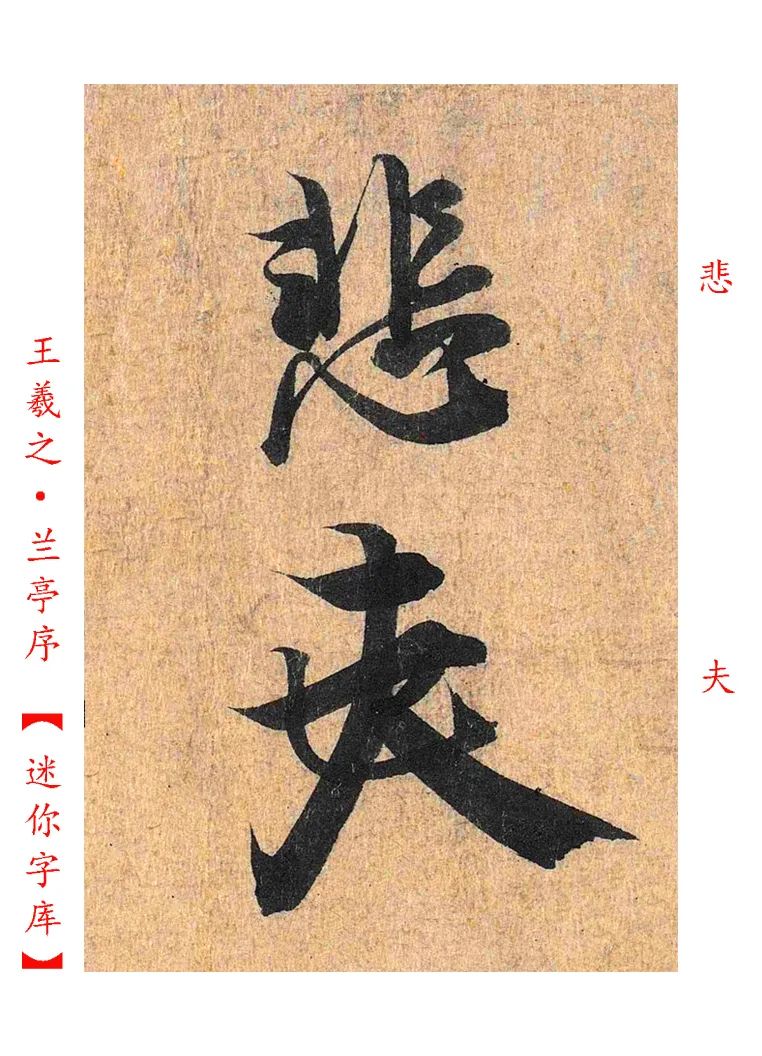 悲
夫
悲
夫
王羲之·兰亭序【迷你字库】